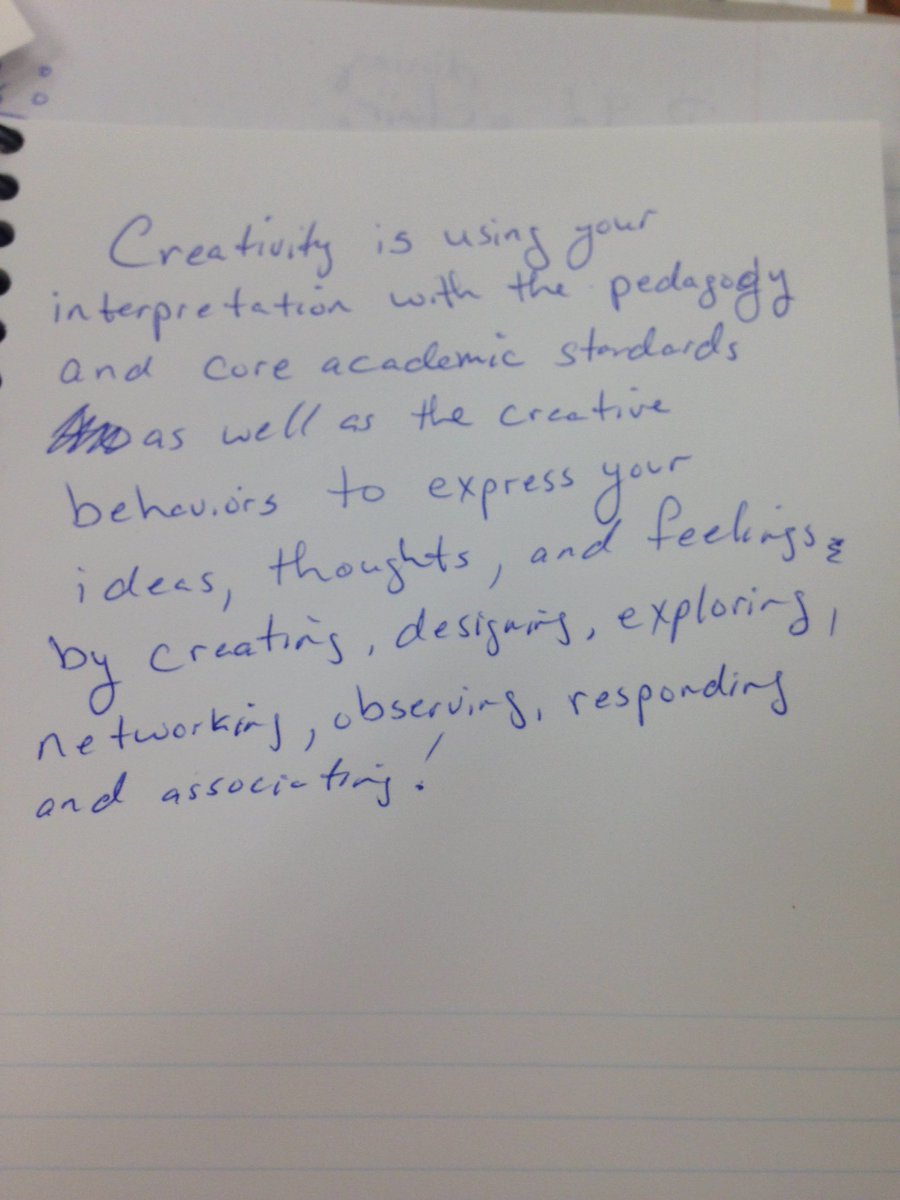 Creativity is using your
interpretation with the pedagogy
and core academic standards
as well as the creative
behaviors to express your
ideas, thoughts, and feelings
by creating, designing, exploring,
networking, observing, responding
and associating!